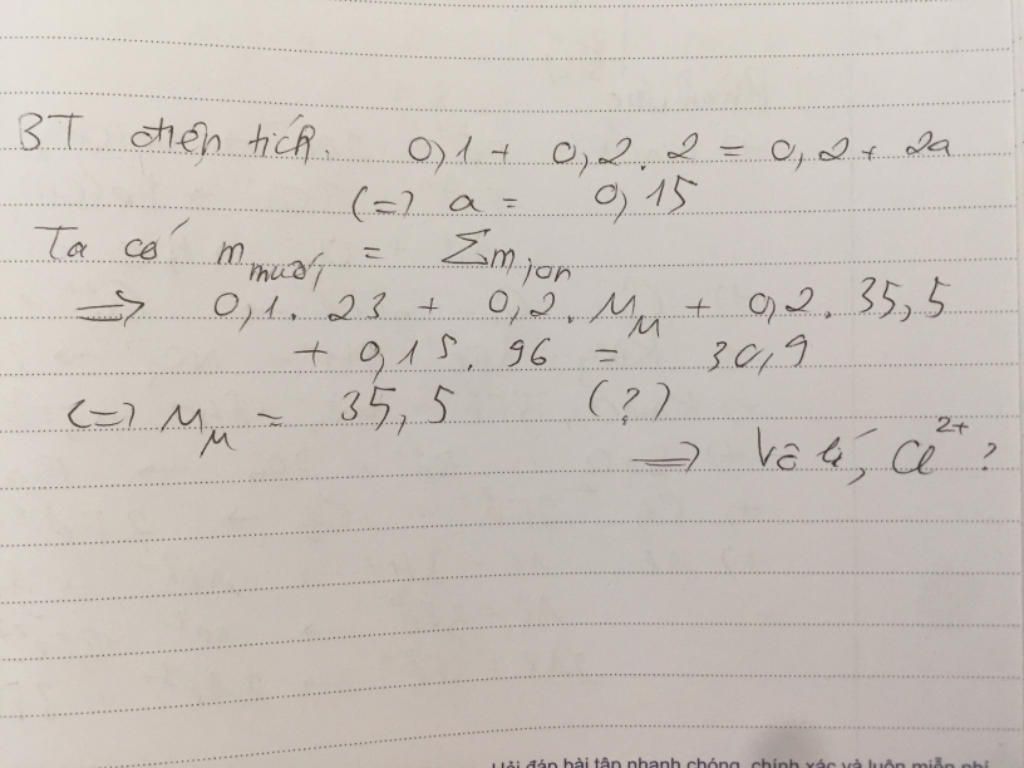 BT điện tích. 0,1 + 0,2.2 = 0,2 + 2a
(=) a = 0,15
Ta có m muối = Σm ion
=> 0,1.23 + 0,2.M_M + 0,2.35,5
+ 0,15.96 = 30,9
(=) M_M = 35,5 (?)
=> Vô lí, Cl²⁺?
Hỏi đáp bài tập nhanh chóng, chính xác và luôn miễn phí